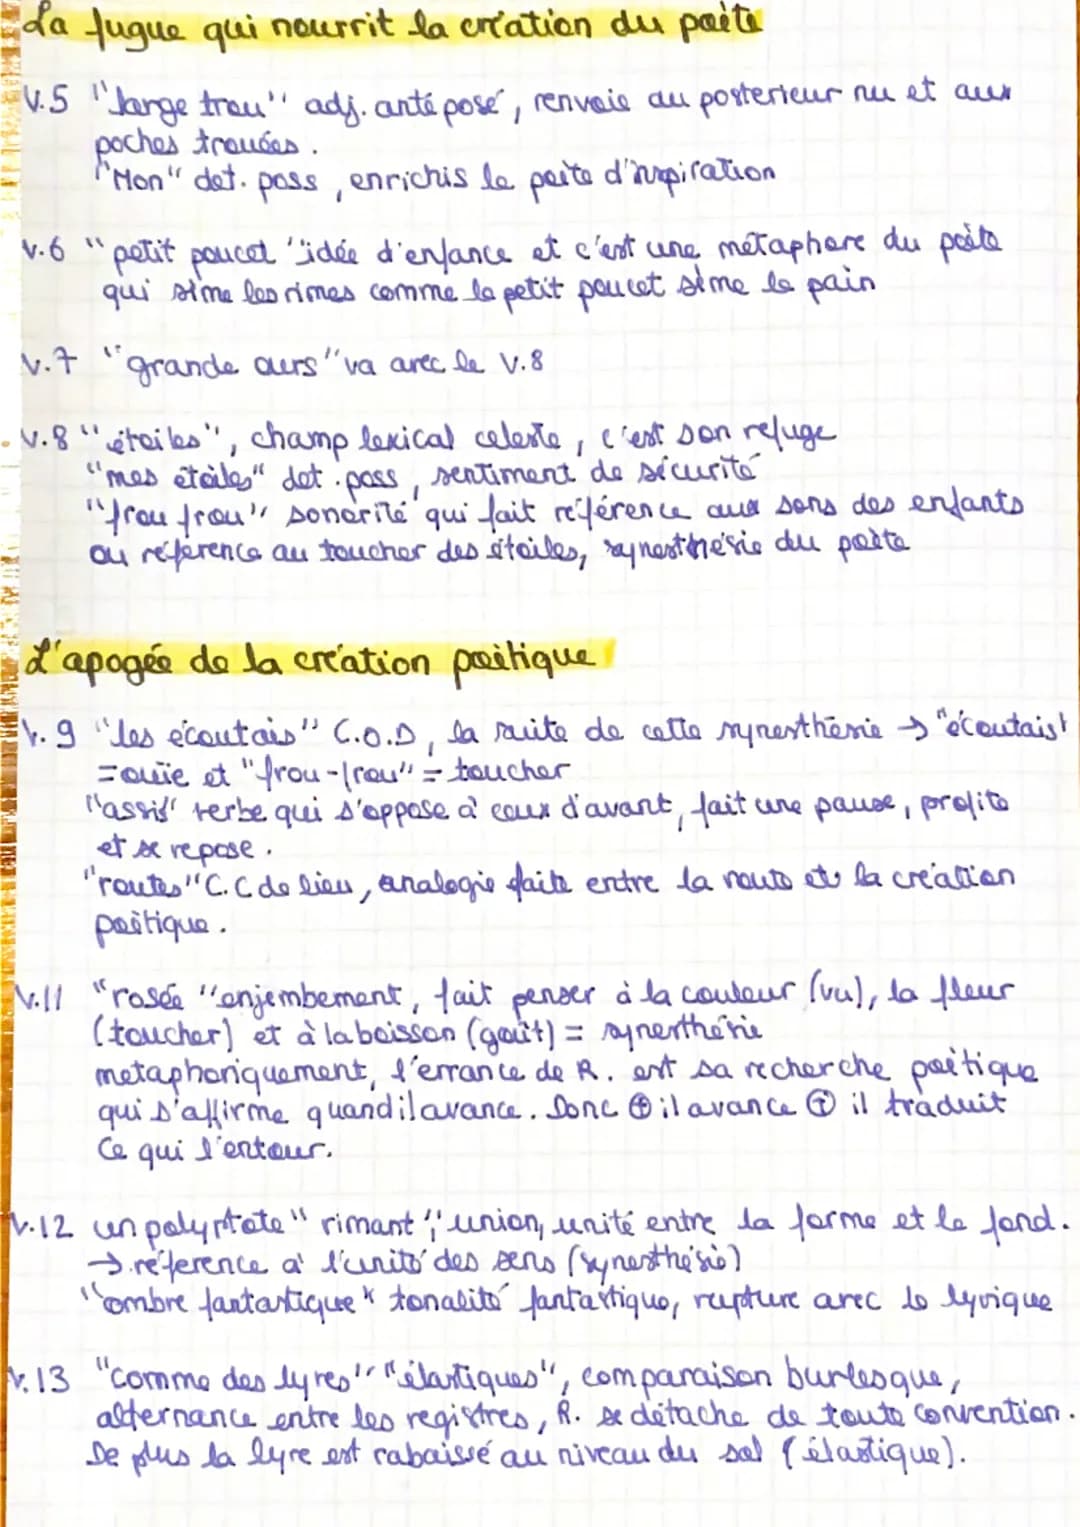 La fugue qui nourrit la création du poète
V.5 "large trou" adj. antéposé, renvoie au posterieur nu et aux
poches trouées.
"Mon" det. poss, enrichis le poète d'inspiration
V.6 "petit poucet" idée d'enfance et c'est une métaphore du poète
qui sème les rimes comme le petit poucet sème le pain
V.7 "grande ours" va avec le V.8
V.8 "étoiles", champ lexical celeste, c'est son refuge
"mes étoiles" det. poss, sentiment de sécurité
"frou frou" sonorité qui fait référence aux sons des enfants
ou réference au toucher des étoiles, synesthésie du poète
L'apogée de la création poétique
V.9 "les écoutais" C.O.D, la suite de cette synesthésie → "écoutais"
= ouïe et "frou-frou" = toucher
"assis" verbe qui s'oppose à ceux d'avant, fait une pause, profite
et se repose.
"routes" C.C de lieu, analogie faite entre la route et la création
poétique.
V.11 "rosée" enjembement, fait penser à la couleur (vu), la fleur
(toucher) et à la boisson (goût) = synesthésie
metaphoriquement, l'errance de R. est sa recherche poétique
qui s'affirme quand il avance. Donc ⊕ il avance ⊕ il traduit
ce qui l'entour.
V.12 un polyptote "rimant", union, unité entre la forme et le fond.
→ réference à l'unité des sens (synesthésie)
"ombre fantastique" tonalité fantastique, rupture avec le lyrique
V.13 "comme des lyres" "élastiques", comparaison burlesque,
alternance entre les registres, R. se détache de toute convention.
De plus la lyre est rabaissé au niveau du sol (élastique).